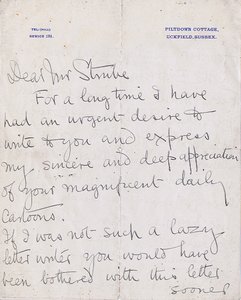 PILTDOWN COTTAGE,
UCKFIELD, SUSSEX.
Dear Mr Strube
For a long time I have
had an urgent desire to
write to you and express
my sincere and deep appreciation
of your magnificent daily
Cartoons.
If I was not such a lazy
letter writer you would have
been bothered with this letter
sooner